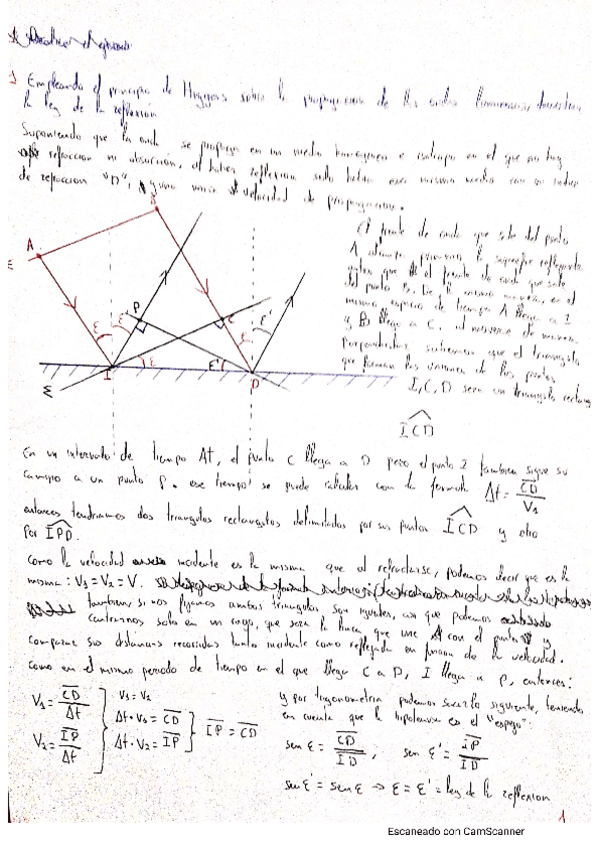 1 Empleando el principio de Huygens sobre la propagación de las ondas luminosas, demuestra
la ley de la reflexión
Suponiendo que la onda se propaga en un medio homogéneo e isótropo en el que no hay
refracción ni absorción, al haber reflexión solo habrá ese mismo medio con un índice
de refracción "n", y una única velocidad de propagación.
El frente de onda que sale del punto
A alcanza primero la superficie reflejante
antes que el frente de onda que sale
del punto B. De la misma manera, en el
mismo espacio de tiempo A llega a I
y B llega a C. al
perpendicular que el triángulo
que forman las uniones de los puntos
I, C, D sera un triángulo rectang
ICD
A
B
P
C
I
D
ε
ε
ε'
ε
ε
ε'
ε'
En un intervalo de tiempo Δt, el punto C llega a D pero el punto I tambien sigue su
camino a un punto P. ese tiempo se puede calcular con la formula Δt = CD
V₁
entonces tendriamos dos triangulos rectangulos delimitados por sus puntos ICD y otro
Por IPD.
Como la velocidad incidente es la misma que al refractarse, podemos decir que es la
misma: V₁ = V₂ = V.
tambien, si nos fijamos ambos triangulos son iguales, asi que podemos
centrarnos solo en un rayo, que sera la linea que une A con el punto y
comparar sus distancias recorridas tanto incidente como reflejada en funcion de la velocidad.
Como en el mismo periodo de tiempo en el que llega C a D, I llega a P, entonces:
V₁ = CD
Δt
V₂ = IP
Δt
V₁ = V₂
Δt · V₁ = CD
Δt · V₂ = IP
IP = CD
y por trigonometria podemos sacar lo siguiente, teniendo
en cuenta que la hipotenusa es el "espejo":
sen ε = CD
ID
, sen ε' = IP
ID
sen ε' = sen ε → ε = ε' = ley de la reflexion
1
Escaneado con CamScanner